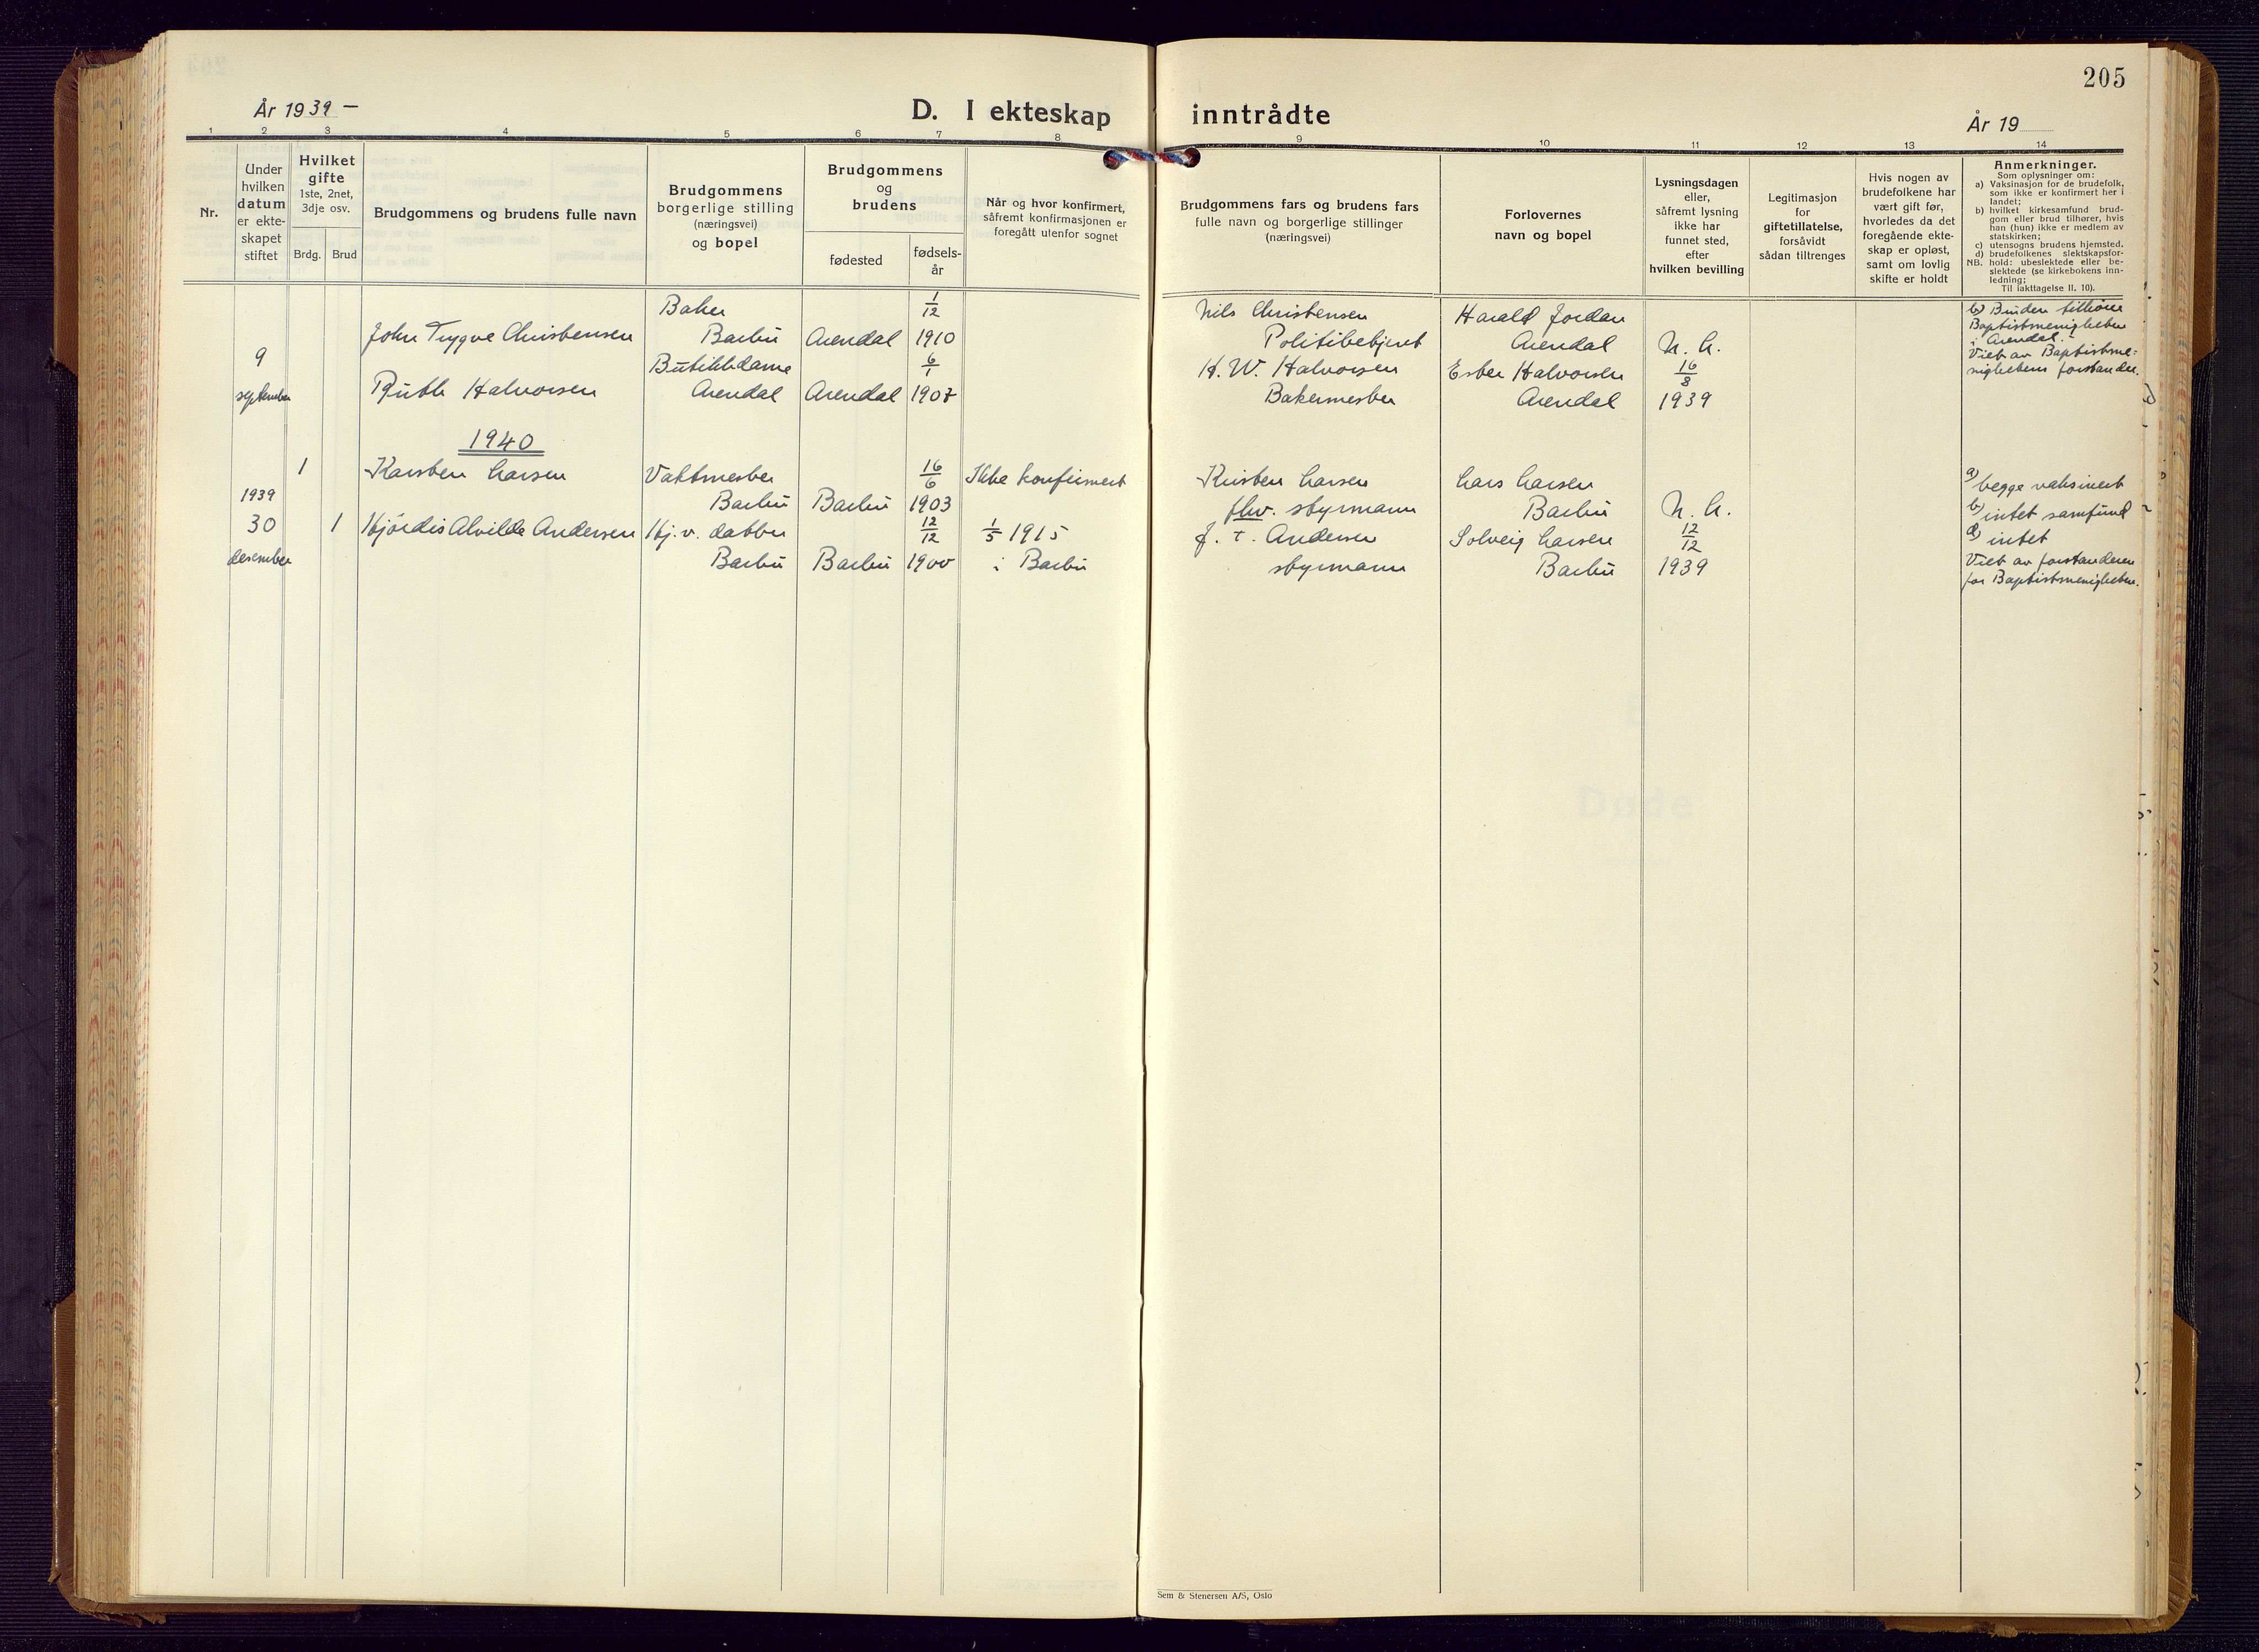 205
År 1939 –
D. I ekteskap inntrådte
År 19
1 2 3 4 5 6 7 8 9 10 11 12 13 14
Nr.
Under
hvilken
datum
er ekte-
skapet
stiftet
Hvilket
gifte
1ste, 2net,
3dje osv.
Brdg.
Brud
Brudgommens og brudens fulle navn
Brudgommens
borgerlige stilling
(næringsvei)
og bopel
Brudgommens
og
brudens
fødested
fødsels-
år
Når og hvor konfirmert,
såfremt konfirmasjonen er
foregått utenfor sognet
Brudgommens fars og brudens fars
fulle navn og borgerlige stillinger
(næringsvei)
Forlovernes
navn og bopel
Lysningsdagen
eller,
såfremt lysning
ikke har
funnet sted,
efter
hvilken bevilling
Legitimasjon
for
giftetillatelse,
forsåvidt
sådan tiltrenges
Hvis nogen av
brudefolkene har
vært gift før,
hvorledes da det
foregående ekte-
skap er opløst,
samt om lovlig
skifte er holdt
Anmerkninger.
Som oplysninger om:
a) Vaksinasjon for de brudefolk,
som ikke er konfirmert her i
landet;
b) hvilket kirkesamfund brud-
gom eller brud tilhører, hvis
han (hun) ikke er medlem av
statskirken;
c) utensogns brudens hjemsted.
d) brudefolkenes slektskapsfor-
NB. hold: ubeslektede eller be-
slektede (se kirkebokens inn-
ledning;
Til iakttagelse II. 10).
9
september
John Trygve Christensen
Ruth Halvorsen
Baker
Barbu
Butikkdame
Arendal
Arendal
Arendal
1/12
1910
6/1
1907
Nils Christensen
Politibetjent
H. W. Halvorsen
Bakermester
Harald Jordan
Arendal
Ester Halvorsen
Arendal
N. L.
16/8
1939
b) Bruden tilhører
Baptistmenigheten
i Arendal.
Viet av Baptistme-
nighetens forstander.
1940
1939
30
desember
1
1
Karsten Larsen
Hjørdis Alvilde Andersen
Vaktmester
Barbu
Hj. v. datter
Barbu
Barbu
Barbu
16/6
1903
12/12
1900
Ikke konfirmert
1/5 1915
i Barbu
Kristen Larsen
fhv. styrmann
J. T. Andersen
styrmann
Lars Larsen
Barbu
Solveig Larsen
Barbu
N. L.
12/12
1939
a) begge vaksinert
b) intet samfund
d) intet
Viet av forstanderen
for Baptistmenigheten.
Døde
Sem & Stenersen A/S, Oslo